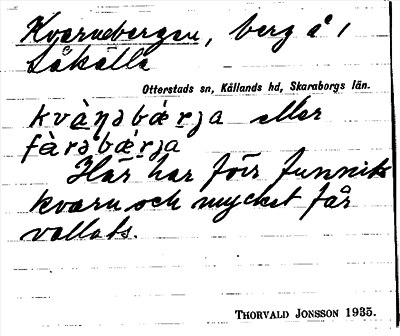 Kvarnebergen, berg å 1
Såkälla
Otterstads sn, Kållands hd, Skaraborgs län.
kvàṇəbǽrja eller
fàrəbǽrja
Här har förr funnits
kvarn och mycket får
vallats.
THORVALD JONSSON 1935.